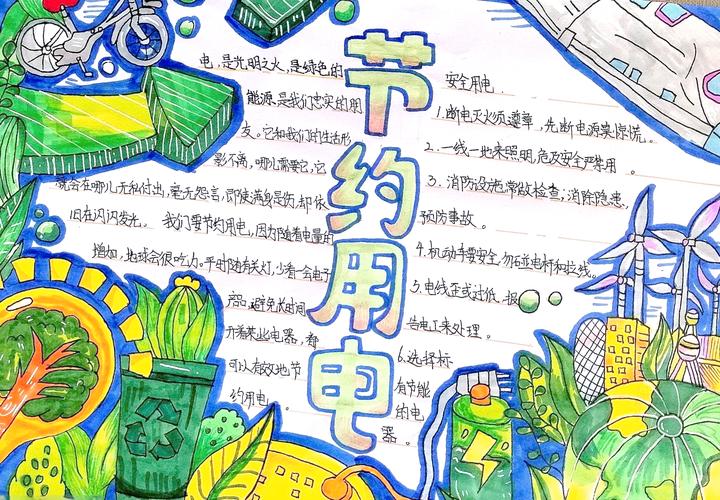 节约用电
电，是光明之火，是绿色的
能源，是我们忠实的朋
友。它和我们的生活形
影不离，哪儿需要它，它
就会在哪儿无私付出，毫无怨言，即使满身是伤，却依
旧在闪闪发光。 我们要节约用电，因为随着电量的
增加，地球会很吃力。平时随手关灯，少看一会电子
产品，避免长时间
开着某些电器，都
可以有效地节
约用电。
安全用电.
1.断电灭火须遵章，先断电源莫惊慌。
2.一线一地来照明，危及安全严禁用。
3.消防设施常做检查；消除隐患，
预防事故。
4.机动车要安全，勿碰电杆和拉线。
5.电线歪或过低，报
告电工来处理。
6.选择标
有节能
的电
器。